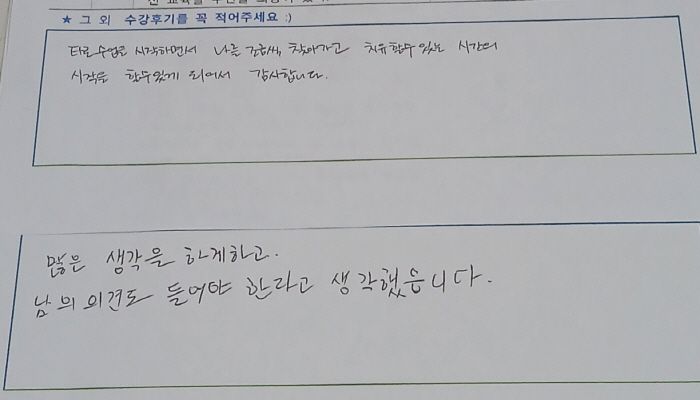 ★ 그 외 수강후기를 꼭 적어주세요 :)
타로수업을 시작하면서 나를 조금씩 찾아가고 치유할수 있는 시간의
시작을 할수있게 되어서 감사합니다.
많은 생각을 하게하고.
남의 의견도 들어야 한다고 생각했습니다.